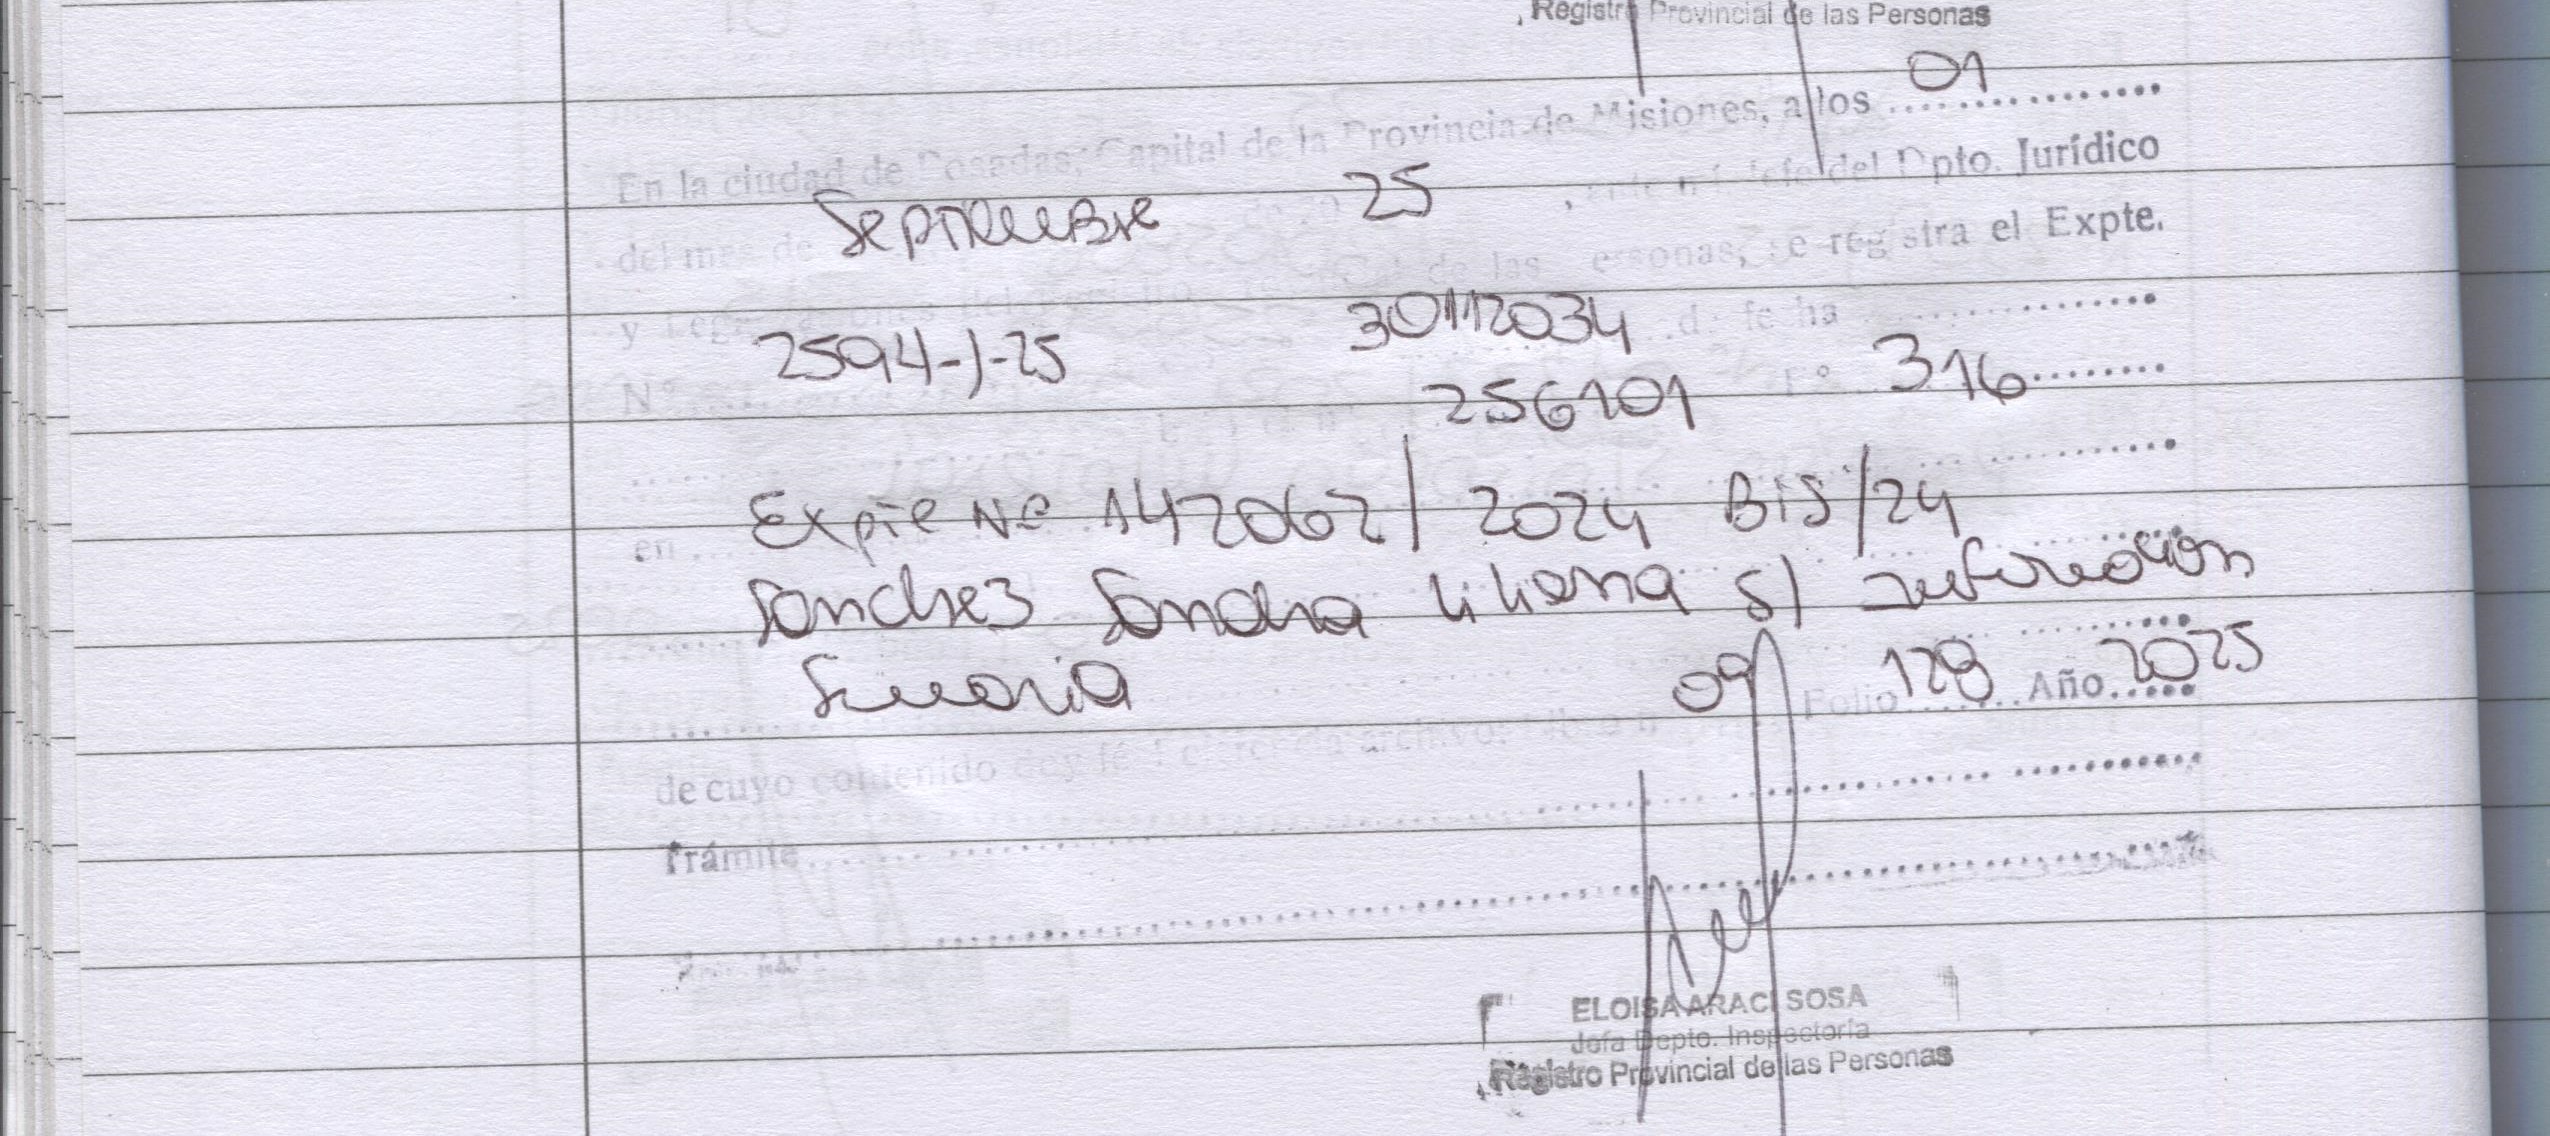 Registro Provincial de las Personas
En la ciudad de Posadas, Capital de la Provincia de Misiones, a los 01
del mes de Septiembre de 20 25, ante mí Jefe del Dpto. Jurídico
y Legalizaciones del Registro Provincial de las Personas, se registra el Expte.
Nº 2594-J-25 30112034 de fecha
256101 Fº 316
en Expte Nº 142062/2024 BIS/24
Sanchez Sandra Liliana s/ informacion
Sumaria 09 Folio 128 Año 2025
de cuyo contenido doy fé
Trámite
ELOISA ARACI SOSA
Jefa Depto. Inspectoría
Registro Provincial de las Personas